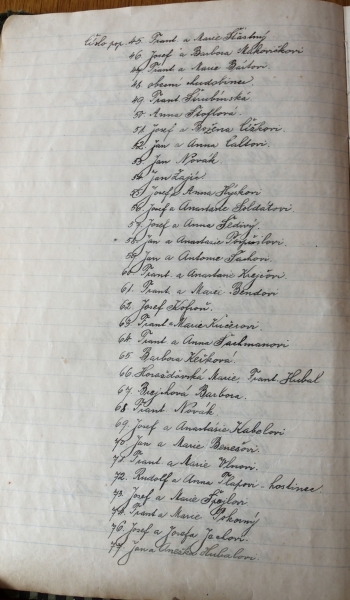 Číslo pop. 45. Frant a Marie Šťastný
46. Josef a Barbora
47. Frant a Marie Bártovi
48. obecní chudobinec.
49. Frant
50. Anna Štoflová
51. Josef a Božena Čížkovi.
52. Jan a Anna Caltovi.
53. Jan Novák.
54. Jan Zajíc
55. Josef a Anna
56. Josef a Anastasie Soldátovi
57. Josef a Anna Šedivý.
58. Jan a Anastasie
59. Jan a Antonie
60. Frant. a Anastasie Krejčovi.
61. Frant a Marie Bendovi
62. Josef Kofroň.
63. Frant a Marie Kučerovi.
64. Frant a Anna Jachmanovi
65 Barbora
66. Horažďovská Marie, Frant. Hubal
67. Brejchová Barbora.
68. Frant. Novák
69. Josef a Anastasie Kabelovi
70. Jan a Marie Benešovi.
71. Frant a Marie
72. Rudolf a Anna - hostinec
73. Josef a Marie
74. Frant a Marie Pokorný
76. Josef a Josefa
77. Jan a Anežka Hubalovi